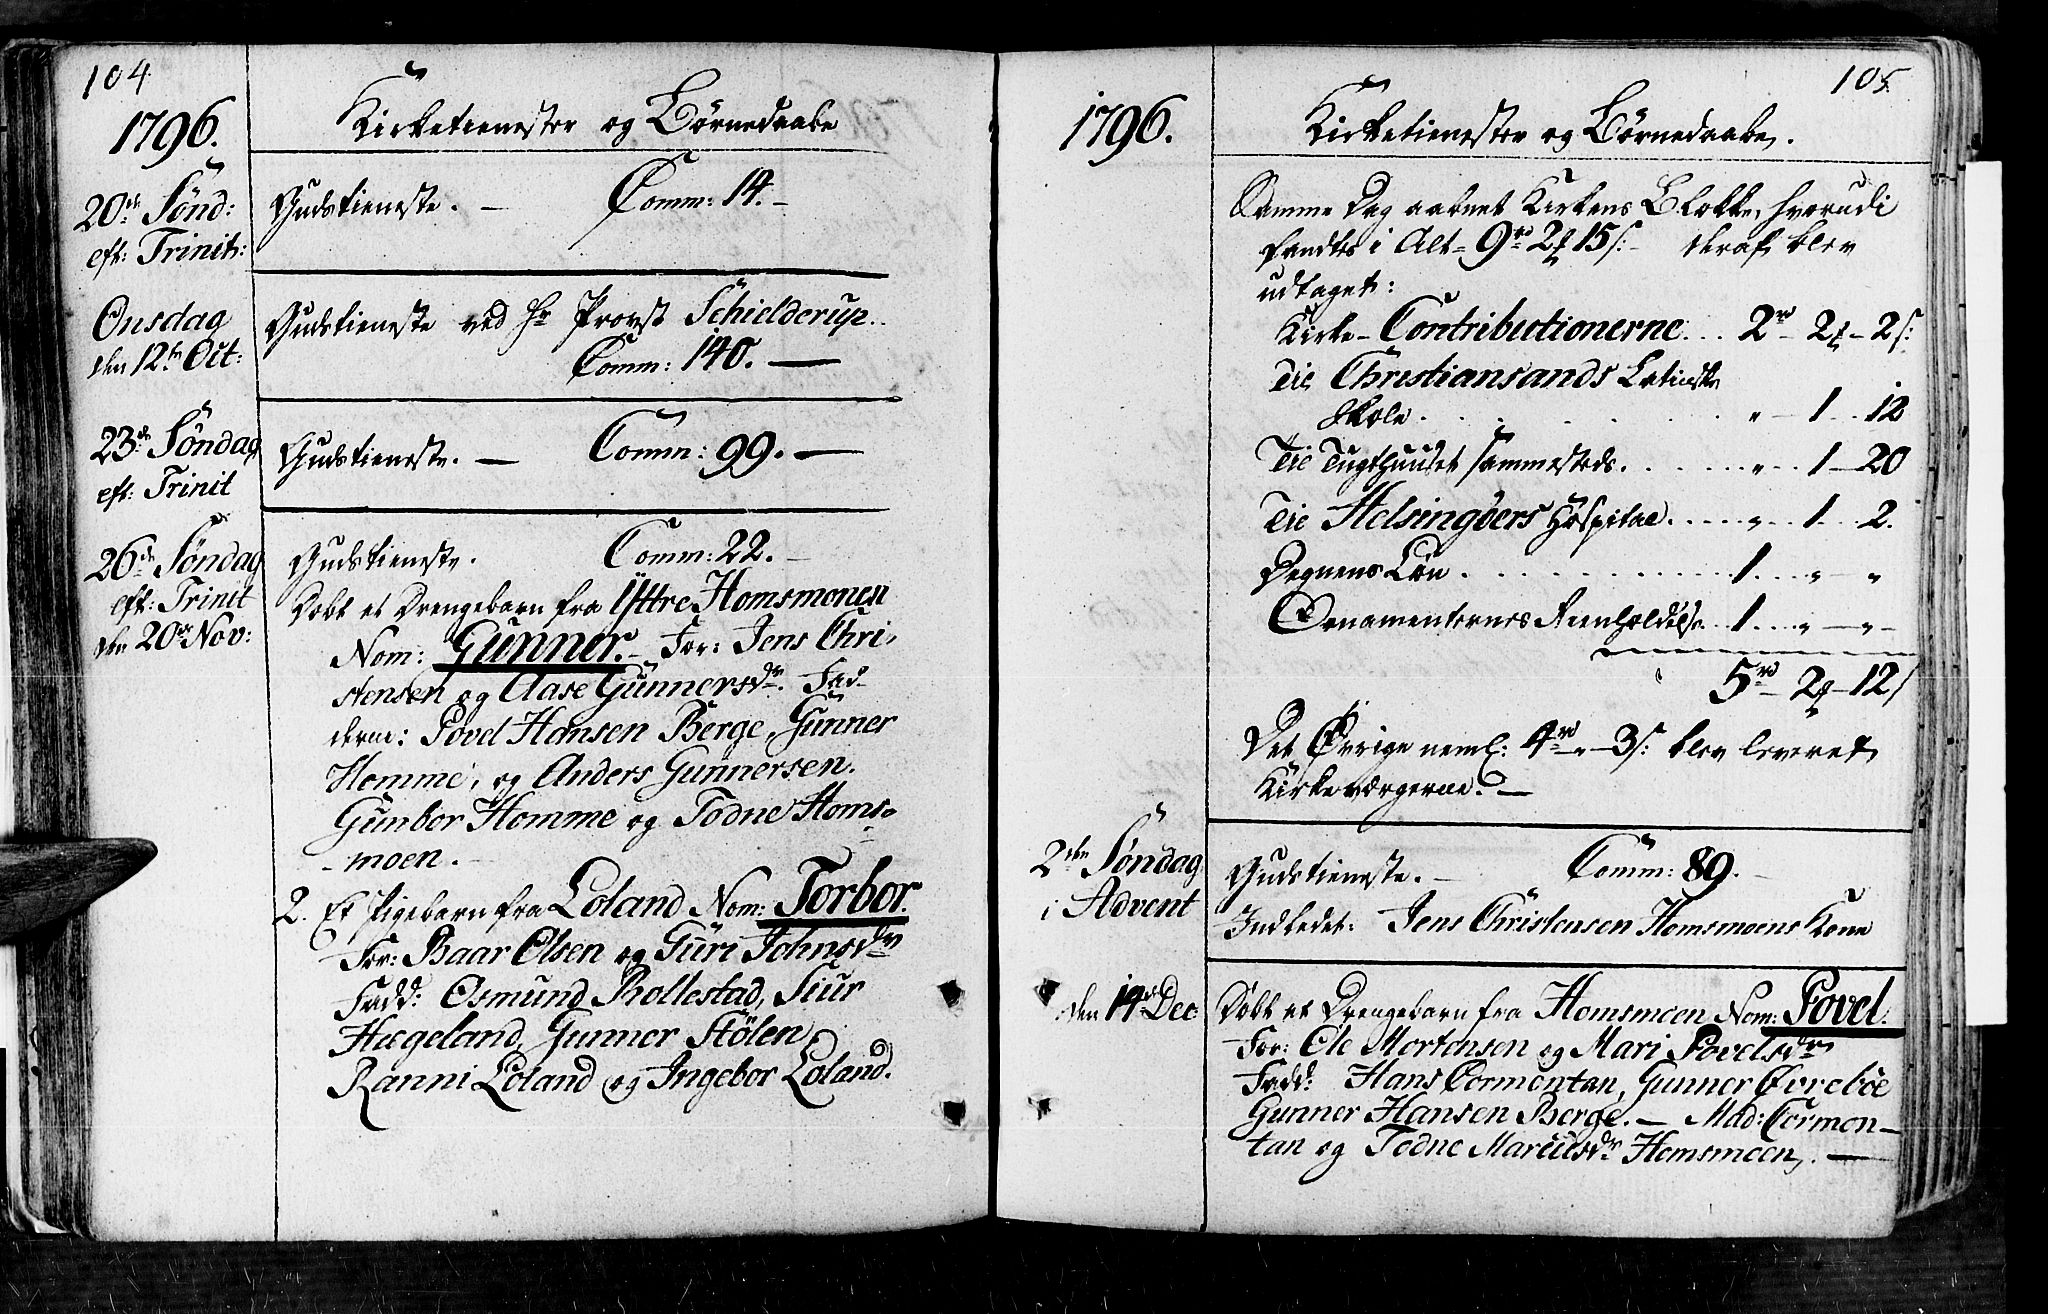 104
1796.
Kirketienester og Börnedaabe
20de Sönd:
eft: Trinit:
Gudstieneste. — Comm: 14. —
Onsdag
den 12te Oct:
Gudstieneste ved Hr Provst Schielderup.
Comm: 140. —
23de Söndag
eft: Trinit
Gudstieneste. — Comm: 99. —
26de Söndag
eft: Trinit
den 20de Nov:
Gudstieneste. Comm: 22. —
Döbt et Drengebarn fra Yttre Homsmonen
Nom: Gunner. For: Jens Chri-
stensen og Aase Gunnersdr. Fad-
derne: Povel Hansen Berge, Gunner
Homme, og Anders Gunnersen.
Gunbor Homme og Todne Homs-
-moen.
2. Et Pigebarn fra Loland Nom: Torbor.
For: Baar Olsen og Güri Johnsdr
Fadd: Osmund Rollestad, Siur
Hægeland, Gunner Stölen,
Ranni Loland og Ingebor Loland.
105
1796.
Kirketienester og Börnedaabe.
Samme Dag aabnet Kirkens Blokke, hvorudi
fandtes i Alt - 9rd 2f 15s: - deraf blev
udtaget:
Kirke-Contributionerne... 2rd - 2f - 2s:
Til Christiansands Latinske
Skole . . . . " - 1 .. 12
Til Tugthuuset sammesteds. . . . . " .. 1 - 20
Til Helsingöers Hospital. . . . . " .. 1 .. 2.
Degnens Lön . . . . . . 1 ... " - "
Ornamenternes Reenholdelse.. 1 ... " - " -
5rd - 2f - 12s
Det Övrige neml: 4rd " - 3s: blev leveret
Kirkeværgerne. —
2den Söndag
i Advent
Gudstieneste. — Comm: 89. —
Indledet: Jens Christensen Homsmoens Kone
den 14de Dec:
Döbt et Drengebarn fra Homsmoen Nom: Povel.
For: Ole Mortensen og Mari Povelsdr
Fadd: Hans Cormontan, Gunner Övreböe
Gunner Hansen Berge. — Mad: Cormon-
tan og Todne Marcusdr Homsmoen. —